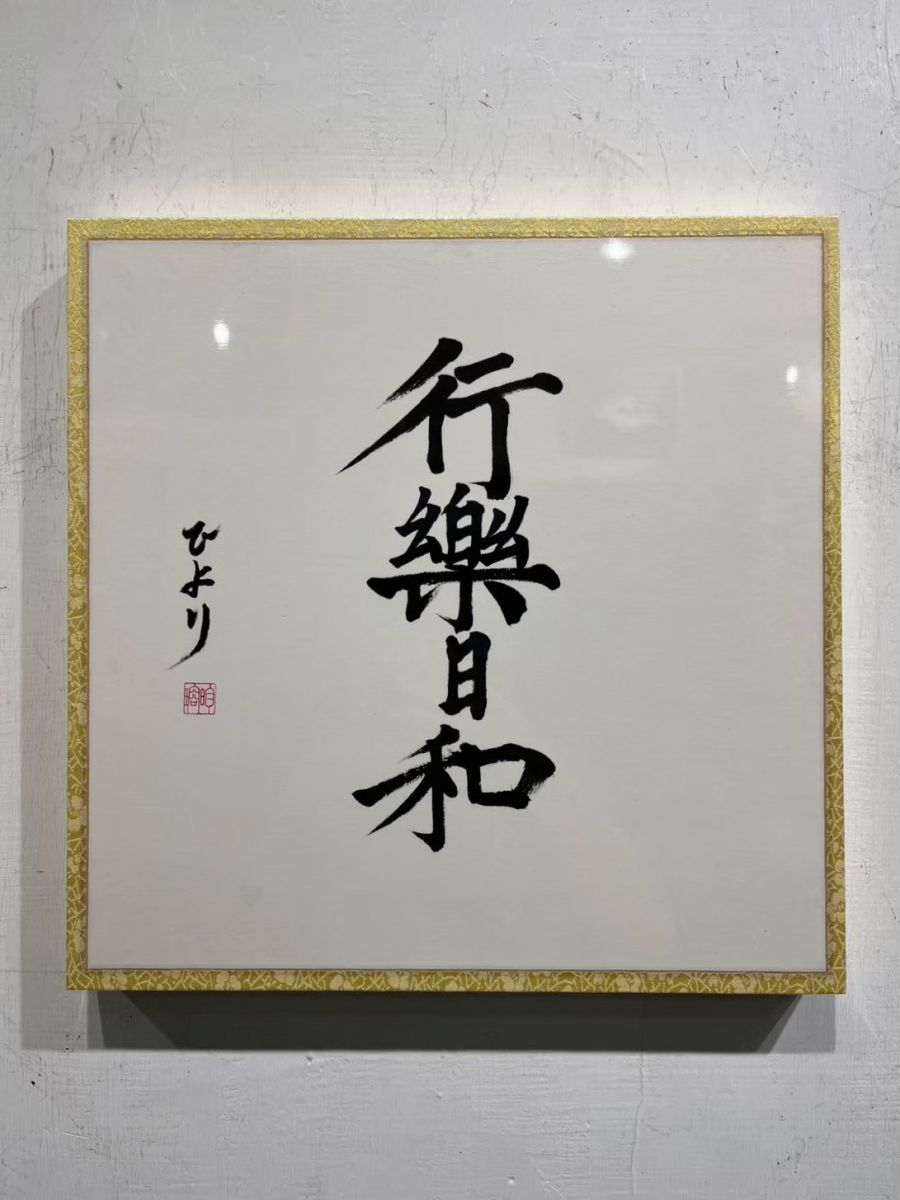 行樂日和
ひより